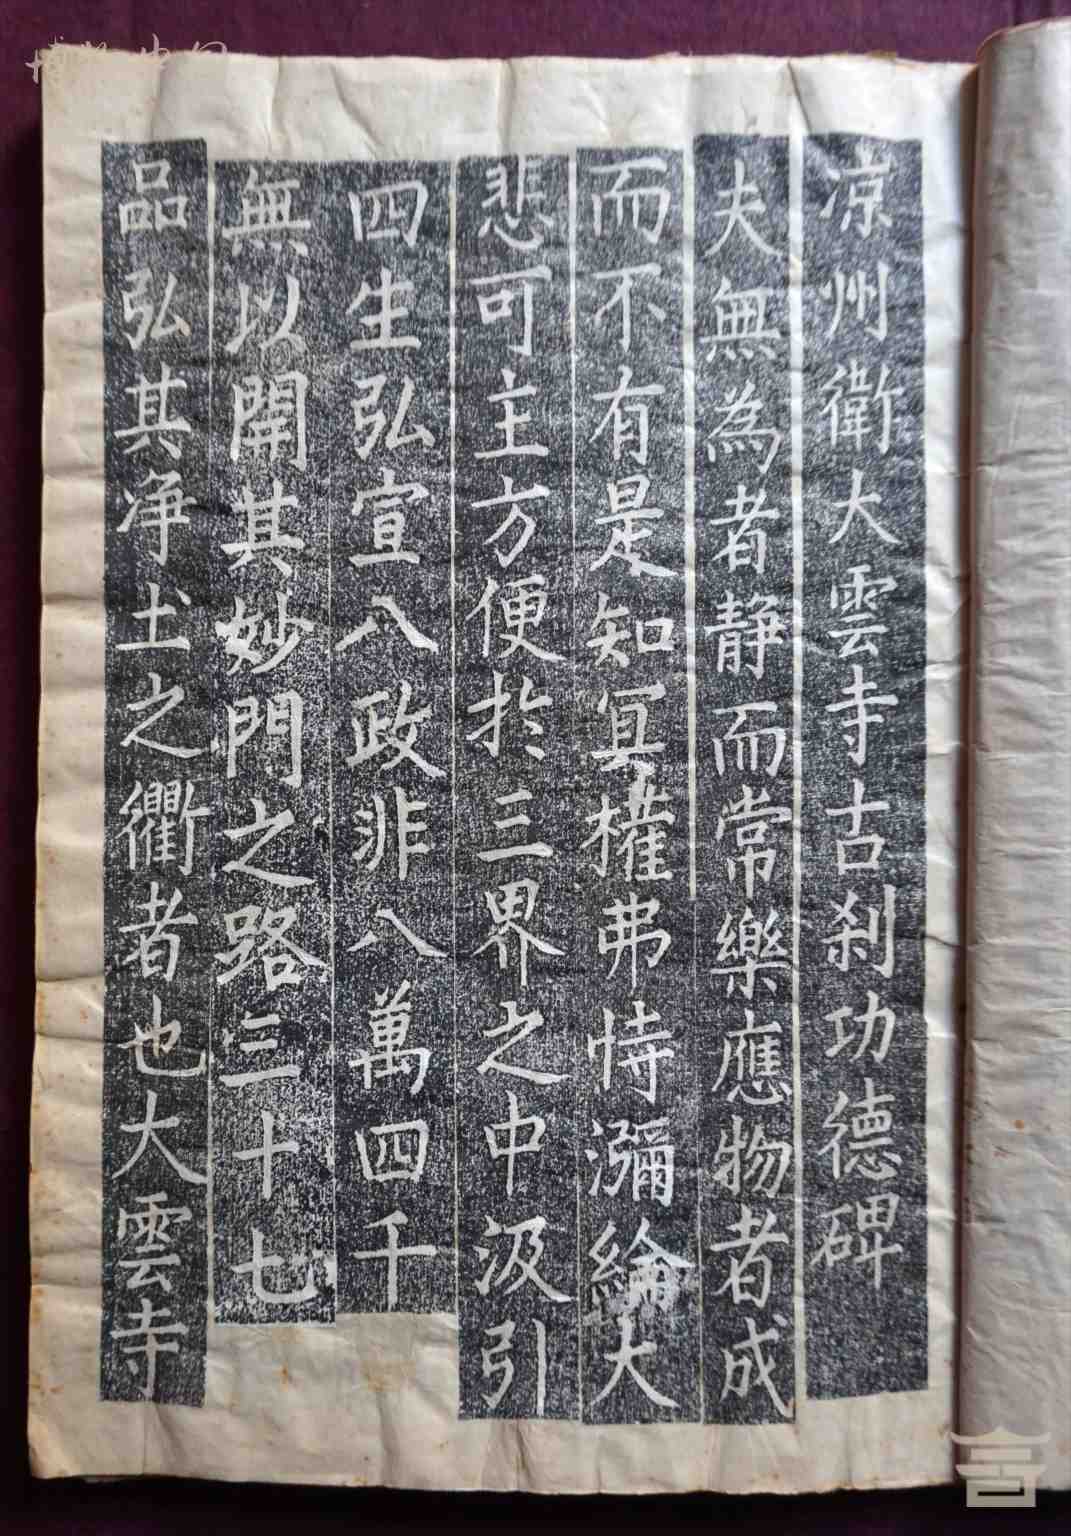 凉州衛大雲寺古刹功德碑
夫無為者静而常樂應物者成
而不有是知冥權弗恃瀰綸大
悲可主方便於三界之中汲引
四生弘宣八政非八萬四千
無以開其妙門之路三十七
品弘其净土之衢者也大雲寺